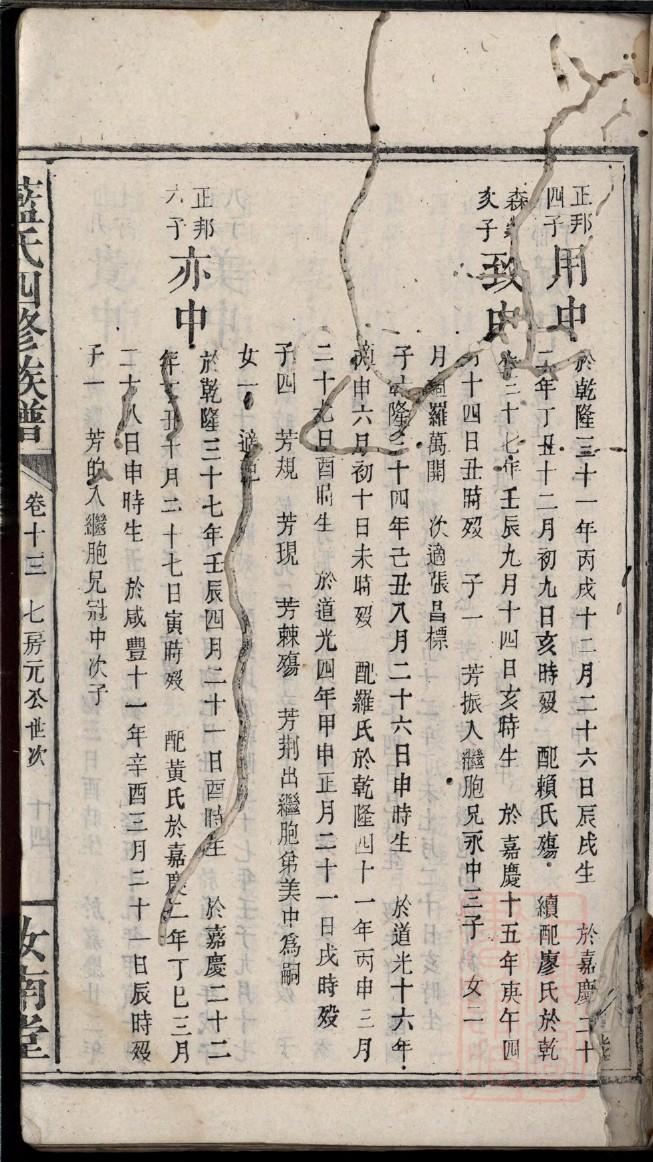 正邦
四子
用中
於乾隆三十一年丙戌十二月二十六日辰戌生　於嘉慶二十
年丁丑十二月初九日亥時歿　配賴氏殤　續配廖氏於乾
三十七年壬辰九月十四日亥時生　於嘉慶十五年庚午四
十四日丑時歿　子一　芳振入繼胞兄永中三子　女二
月　羅萬開　次適張昌標
森
亥子
致中
乾隆三十四年己丑八月二十六日申時生　於道光十六年
申六月初十日未時歿　配羅氏於乾隆四十一年丙申三月
二十九日酉時生　於道光四年甲申正月二十一日戌時歿
子四　芳規　芳現　芳棘殤　芳荆出繼胞弟美中爲嗣
女一　適
正邦
六子
亦中
於乾隆三十七年壬辰四月二十一日酉時生　於嘉慶二十二
年丁丑十月二十七日寅時歿　配黃氏於嘉慶二年丁巳三月
二十八日申時生　於咸豐十一年辛酉三月二十一日辰時歿
子一　芳的入繼胞兄冠中次子
藍氏四修族譜
卷十三　七房元公世次
十四
汝南堂